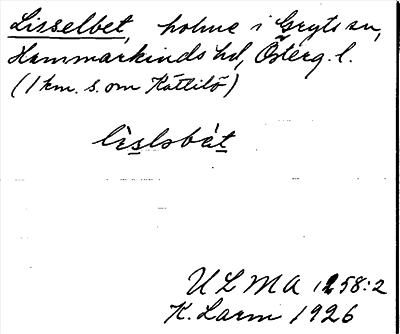 Lisselbet, holme i Gryts sn,
Hammarkinds hd, Österg. l.
(1 km. s. om Kättilö)
lìslsbèt
ULMA 1258:2
K. Larm 1926